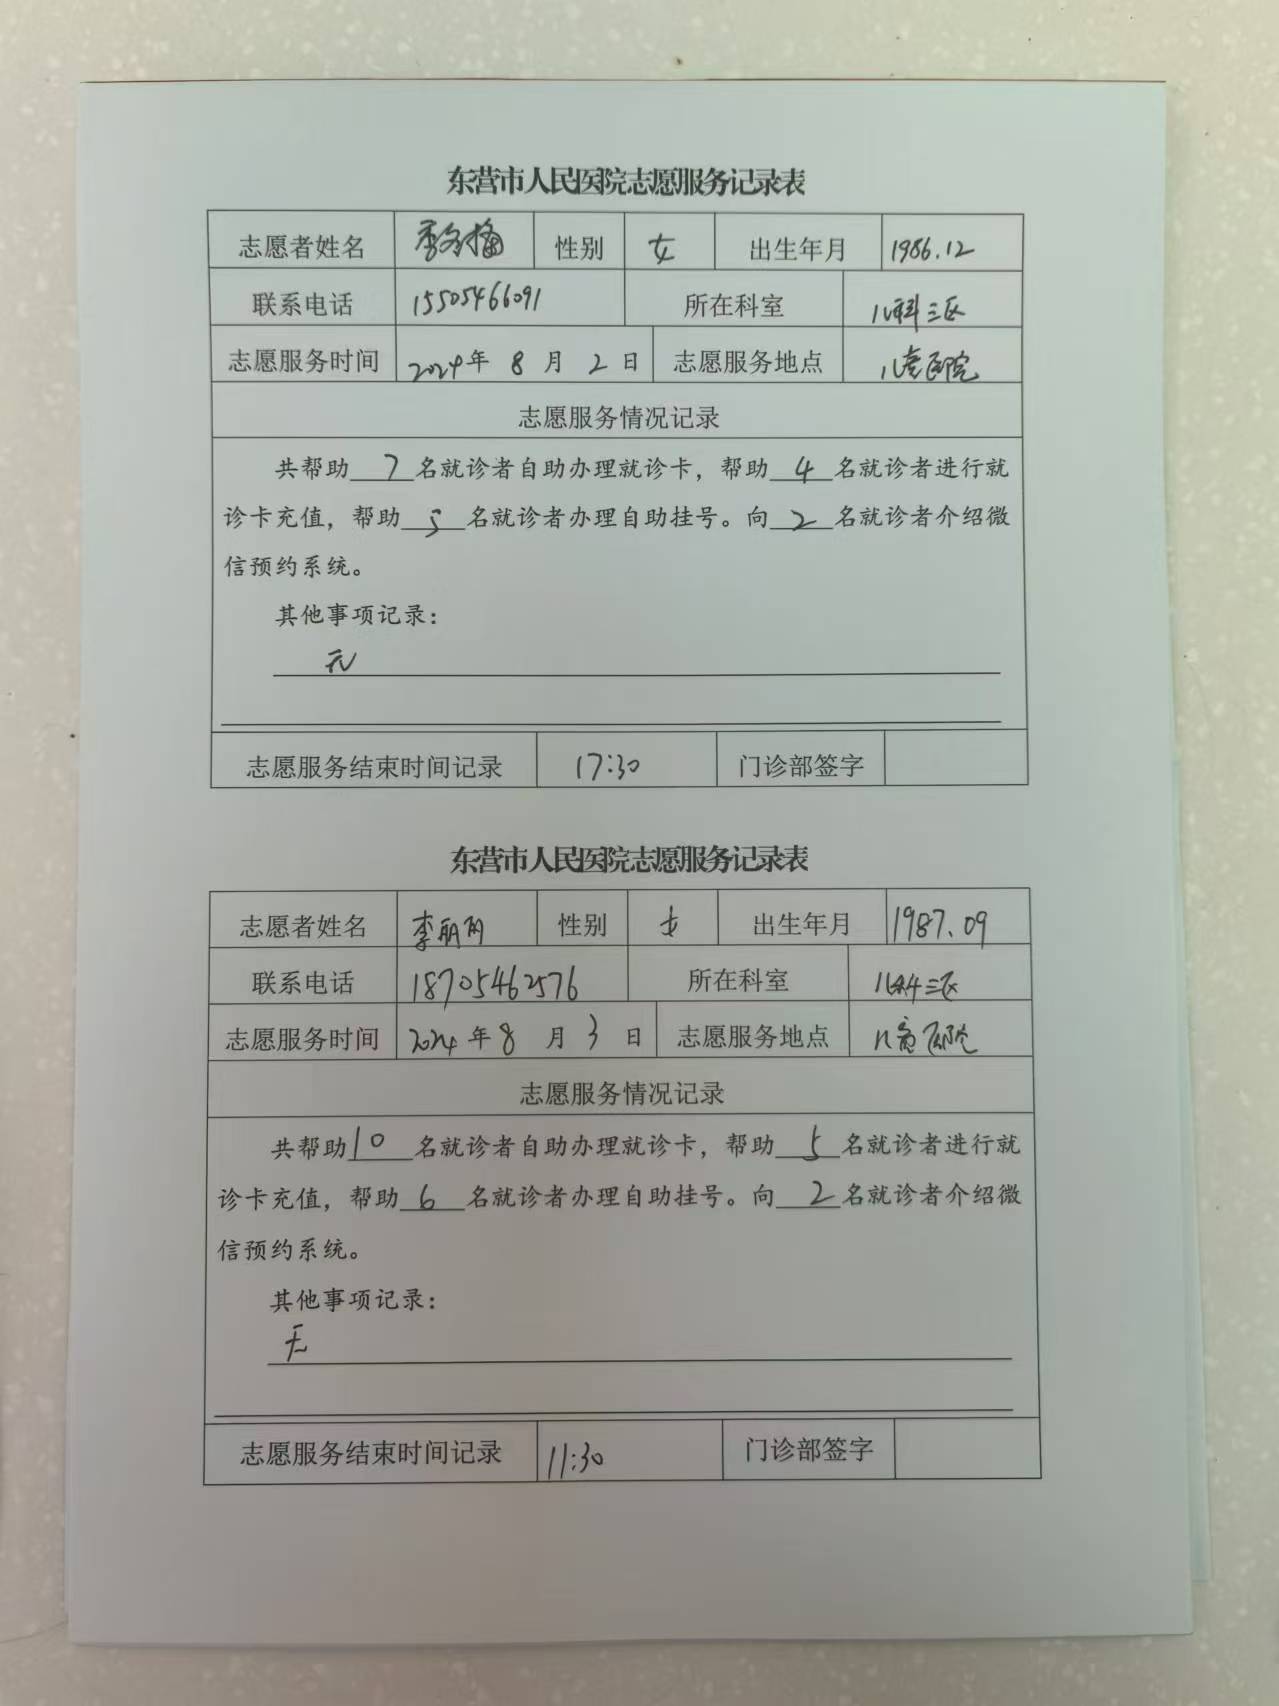 东营市人民医院志愿服务记录表
志愿者姓名 性别 女 出生年月 1986.12
联系电话 15505466091 所在科室 儿科三区
志愿服务时间 2024年 8 月 2 日 志愿服务地点 儿童医院
志愿服务情况记录
共帮助 7 名就诊者自助办理就诊卡，帮助 4 名就诊者进行就
诊卡充值，帮助 5 名就诊者办理自助挂号。向 2 名就诊者介绍微
信预约系统。
其他事项记录：
无
志愿服务结束时间记录 17:30 门诊部签字
东营市人民医院志愿服务记录表
志愿者姓名 李丽丽 性别 女 出生年月 1987.09
联系电话 18705462576 所在科室 儿科三区
志愿服务时间 2024年 8 月 3 日 志愿服务地点 儿童医院
志愿服务情况记录
共帮助 10 名就诊者自助办理就诊卡，帮助 5 名就诊者进行就
诊卡充值，帮助 6 名就诊者办理自助挂号。向 2 名就诊者介绍微
信预约系统。
其他事项记录：
无
志愿服务结束时间记录 11:30 门诊部签字